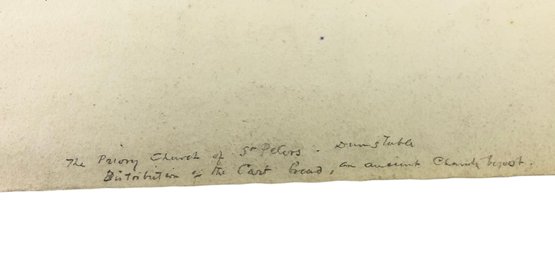 The Priory Church of St Peters. Dunstable
Distribution of the Cart bread, an ancient Charity bequest.